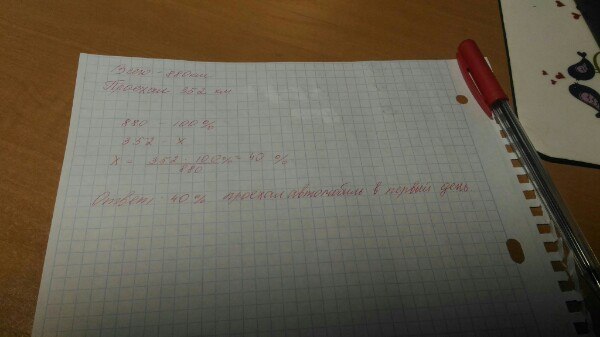 Всего - 880 км
Проехал 352 км
880 - 100%
352 х
х = 352 · 100% = 40 %
880
Ответ: 40% проехал автомобиль в первый день